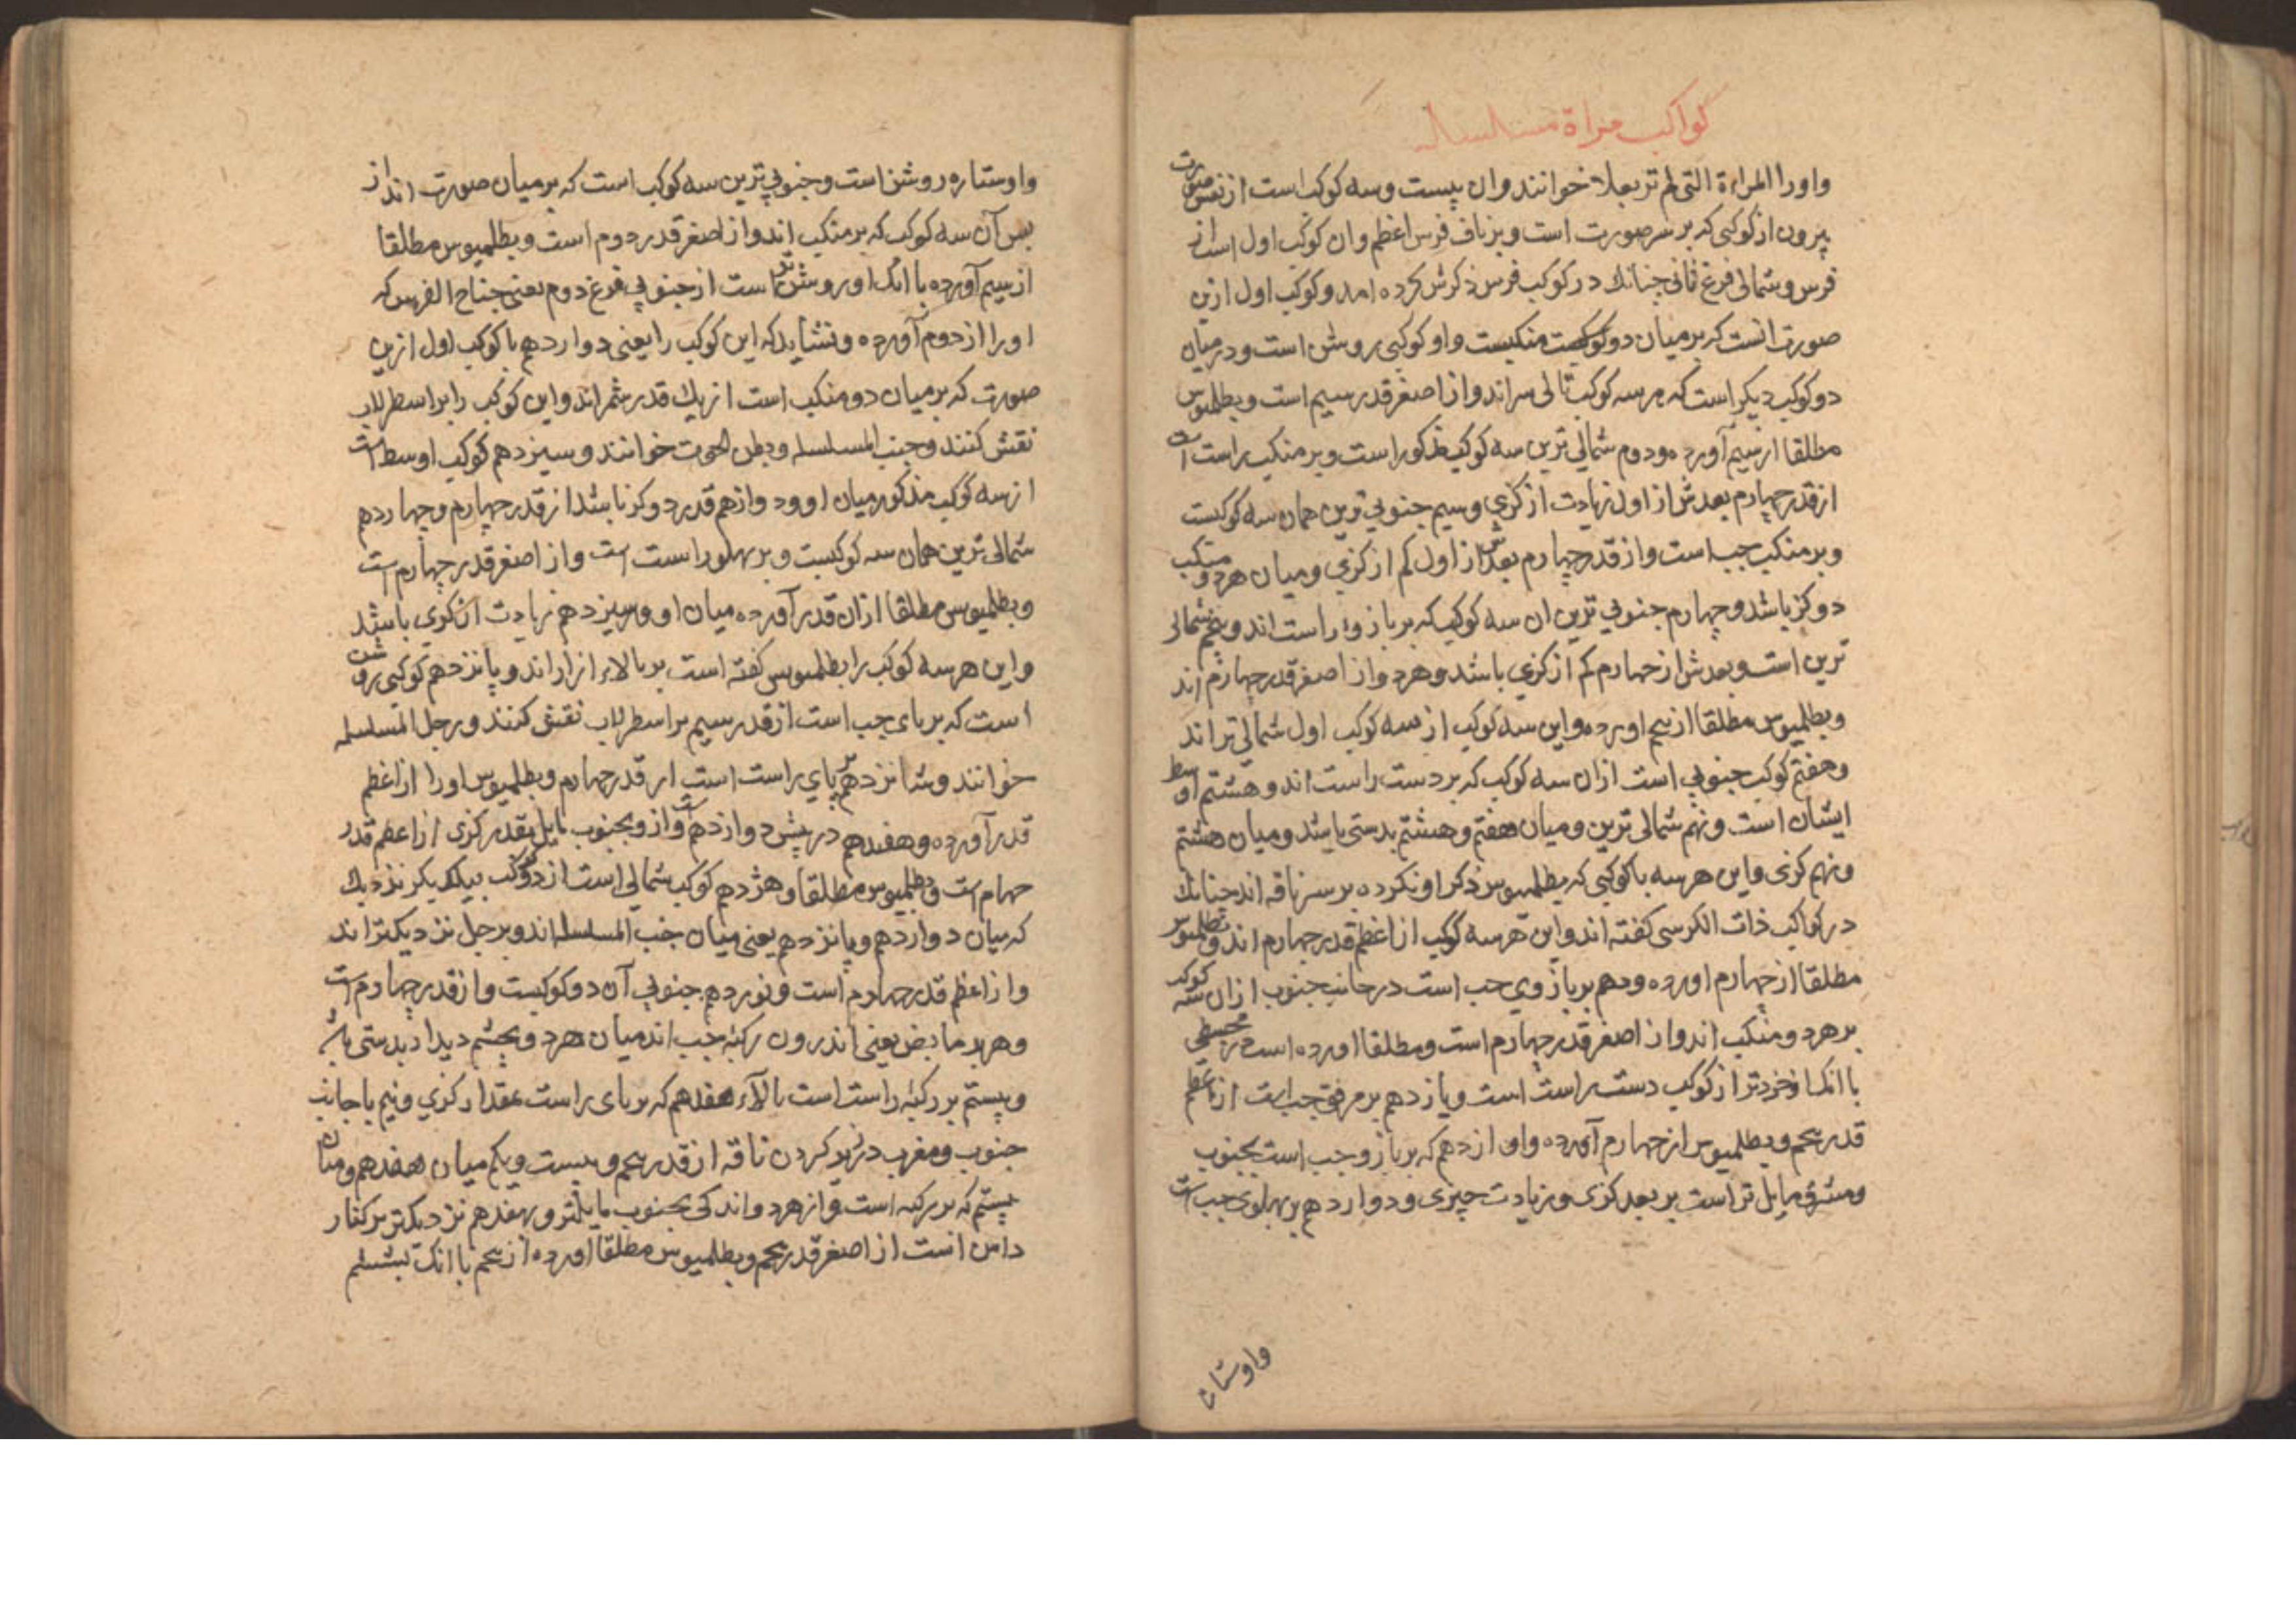 کواکب مراة مسلسله
واورا المراءة التی لم تر بعلا خوانند وان بیست وسه کوکب است از نفس صورت
بیرون از کوکبی که بر سر صورت است و بر ناف فرس اعظم وان کوکب اول است از
فرس و شمالی فرغ ثانی چنانك در کوکب فرس ذکرش کرده امد و کوکب اول ازین
صورت انست که بر میان دو منکبست واو کوکبی روشن است ودر میان
دو کوکب دیکر است که هر سه کوکب تالی سر اند واز اصغر قدر سیم است و بطلمیوس
مطلقا از سیم آورده ودوم شمالی ترین سه کوکب مذکور است وبر منکب راست است
از قدر چهارم بعدش از اول زیادت از کزی وسیم جنوبی ترین همان سه کوکبست
وبر منکب چب است واز قدر چهارم بعدش از اول کم از کزی ومیان هر دو منکب
دو کز باشد وچهارم جنوبی ترین ان سه کوکب که بر بازوء راست اند وپنجم شمالی
ترین است وبعدش از چهارم کم از کزی باشد وهر دو از اصغر قدر چهارم اند
وبطلمیوس مطلقا از پنجم اورده واین سه کوکب از سه کوکب اول شمالی تر اند
وهفتم کوکب جنوبی است ازان سه کوکب که بر دست راست اند وهشتم اوسط
ایشان است ونهم شمالی ترین ومیان هفتم وهشتم بدستی باشد ومیان هشتم
ونهم کزی واین هر سه با کوکبی که بطلمیوس ذکر او نکرده بر سر ناقه اند چنانك
در کواکب ذات الکرسی کفته اند واین هر سه کوکب از اعظم قدر چهارم اند وبطلمیوس
مطلقا از چهارم اورده ودهم بر بازوی چب است در جانب جنوب ازان سه کوکب
بر هر دو منکب اند واز اصغر قدر چهارم است ومطلقا اورده است در مجسطی
با انك او خردتر از کوکب دست راست است ویازدهم بر مرفق چب است از اعظم
قدر پنجم وبطلمیوس از چهارم آورده واو از دهم که بر بازو چب است بجنوب
ومشرق مایل تر است بر بعد کزی وزیادت چیزی ودوازدهم بر پهلوی چب است
واوستاره
واوستاره روشن است وجنوبی ترین سه کوکب است که بر میان صورت اند از
پس آن سه کوکب که بر منکب اند واز اصغر قدر دوم است وبطلمیوس مطلقا
از سیم آورده با انك او روشن تر است از جنوبی فرغ دوم یعنی جناح الفرس که
اورا از دوم آورده ونشاید که این کوکب را یعنی دوازدهم با کوکب اول ازین
صورت که بر میان دو منکب است از یك قدر شمراند واین کوکب را بر اسطرلاب
نقش کنند وجنب المسلسله وبطن الحوت خوانند وسیزدهم کوکب اوسط است
از سه کوکب مذکور میان او ودوازدهم قدر دو کز باشد از قدر چهارم وچهاردهم
شمالی ترین همان سه کوکبست وبر پهلو راست است واز اصغر قدر چهارم است
وبطلمیوس مطلقا ازان قدر آورده میان او وسیزدهم زیادت از کزی باشد
واین هر سه کوکب را بطلمیوس کفته است بر بالاء ازار اند وپانزدهم کوکبی روشن
است که بر پای چب است از قدر سیم بر اسطرلاب نقش کنند ورجل المسلسله
خوانند وشانزدهم بر پای راست است از قدر چهارم وبطلمیوس اورا از اعظم
قدر آورده وهفدهم در پیش دوازدهم است واز وبجنوب مایل بقدر کزی از اعظم قدر
چهارم است وبطلمیوس مطلقا وهژدهم کوکب شمالی است از دو کوکب بیکدیکر نزدیك
که میان دوازدهم وپانزدهم یعنی میان جنب المسلسله اند وبرجل نزدیکتر اند
واز اعظم قدر چهارم است ونوزدهم جنوبی آن دو کوکبست واز قدر چهارم است
وهر دو بر مابض یعنی اندرون رکبه چب اند میان هر دو بچشم دیدار بدستی باشد
وبیستم بر رکبه راست است بالاء هفدهم که بر پای راست بمقدار کزی ونیم با جانب
جنوب ومغرب در نزد کردن ناقه از قدر پنجم وبیست ویکم میان هفدهم ومیان
بیستم که بر رکبه است واز هر دو اندکی بجنوب مایلتر وبهفدهم نزدیکتر بر کنار
دامن است از اصغر قدر پنجم وبطلمیوس مطلقا اورده از پنجم با انك بششم